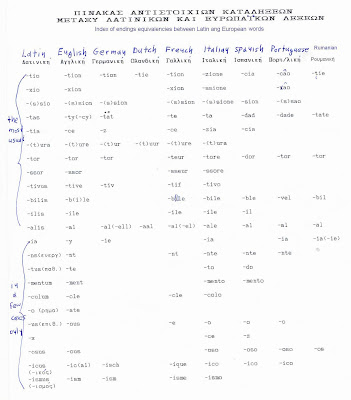 ΠΙΝΑΚΑΣ ΑΝΤΙΣΤΟΙΧΙΩΝ ΚΑΤΑΛΗΞΕΩΝ
ΜΕΤΑΞΥ ΛΑΤΙΝΙΚΩΝ ΚΑΙ ΕΥΡΩΠΑΪΚΩΝ ΛΕΞΕΩΝ
Index of endings equivalencies between Latin ang European words
Latin English German Dutch French Italian Spanish Portuguese Rumanian
Λατινική Αγγλική Γερμανική Ολλανδική Γαλλική Ιταλική Ισπανική Πορτ/λική Ρουμανική
-tio -tion -tion -tie -tion -zione -cion -cão -tie
-sio -xion -xion -ssione -xão
-(s)sio -(s)sion -(s)sion -(s)sion -(s)sione -sion -(s)sao
-tas -ty(-cy) -tät -te -ta -dad -dade -tate
-tia -ce -z -ce -zia -cia
-(t)ura -(t)ure -(t)ur -(t)uur -(t)ure -(t)ura
-tor -tor -tor -teur -tore -dor -tor -tor
-ssor -ssor -sseur -ssore
-tivus -tive -tiv -tif -tivo
-bilis -b(i)le -bile -bile -ble -vel -bil
-ilis -ile -ile -ile -il
-alis -al -al(-ell) -aal -al(-el) -ale -al -al -al
the most usual
-ia -y -ie -ia -ia -ia(-ie)
-ns(ενεργ) -nt -nt -nte -nte -nte
-tus(παθ.) -te -to -do
-mentum -ment -mento -mento
-culum -cle -cle -colo
-o (ρημα) -ate
-us(επιθ.) -ous -e -o -o -o
-x -ce -z
-osus -ous -oso -oso -oso -os
-icus -ic(al) -isch -ique -ico -ico -ico
(-ικός)
-ismus -ism -ism -isme -ismo
(-ισμος)
in a few cases only